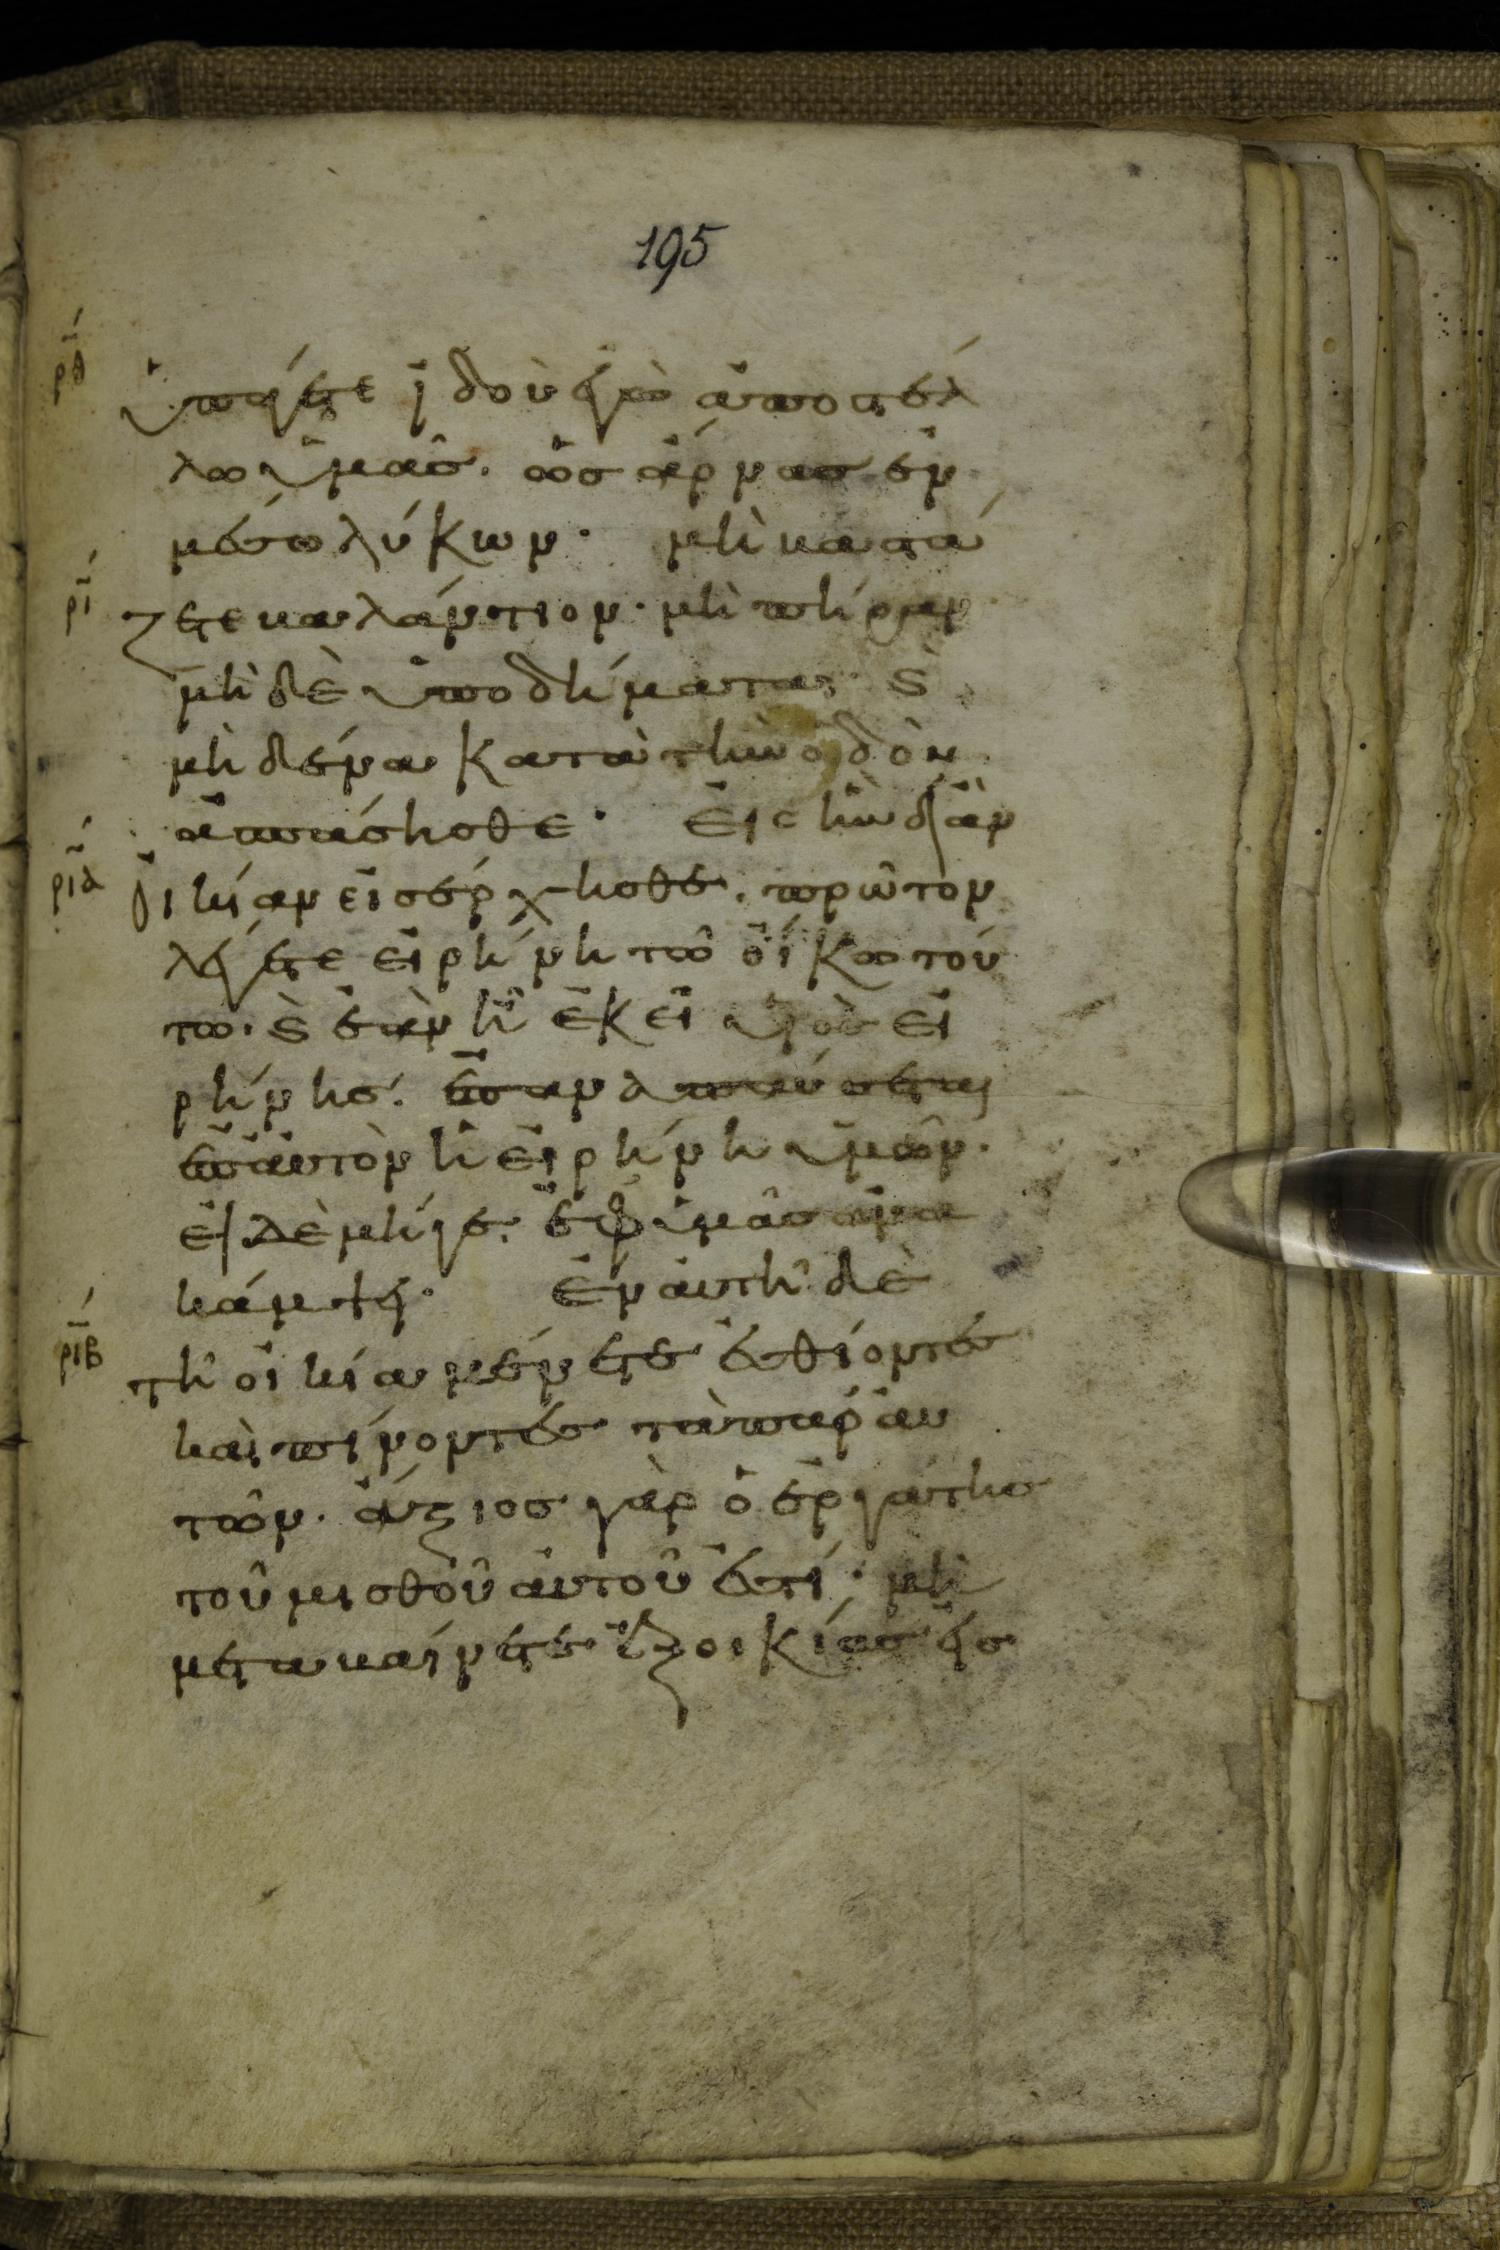 195
ρθ ὑπάγετε ἰδοὺ ἐγὼ ἀποστέλ
λω ὑμᾶς. ὡς ἄρνας ἐν
μέσω λύκων· μὴ βαστά
ρι ζετε βαλάντιον· μὴ πήραν
μὴ δὲ ὑποδήματα· ϗ
μὴδένα κατὰ τὴν ὁδὸν
ἀσπάσησθε· εἰς ἣν δ' ἂν
ρια οἰκίαν εἰσέρχησθε. πρῶτον
λέγετε εἰρήνη τῶ οἴκω τού
τω. ϗ ἐὰν ἦ ἐκεῖ υἱὸς εἰ
ρήνης. ἐπαναπαύσεται
ἐπ' αὐτὸν ἡ εἰρήνη ὑμῶν.
εἰ δὲ μήγε. ἐφ' ὑμᾶς ἀνα
κάμψει· ἐν αὐτῆ δὲ
ριβ τῆ οἰκία μένετε ἐσθίοντες
καὶ πίνοντες τὰ παρ' αὐ
τῶν. ἄξιος γὰρ ὁ ἐργάτης
τοῦ μισθοῦ αὐτοῦ ἐστί· μὴ
μεταβαίνετε ἐξ οἰκίας εἰς